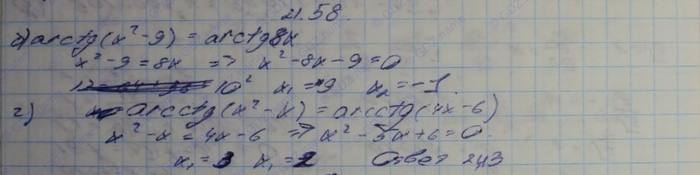 21.58.
б) arcctg(x²-9) = arcctg8x
x²-9=8x => x²-8x-9=0
10² x₁=9 x₂=-1
г) arcctg(x²-x)=arcctg(4x-6)
x²-x=4x-6 => x²-5x+6=0
x₁=3 x₁=2 Ответ 2и3